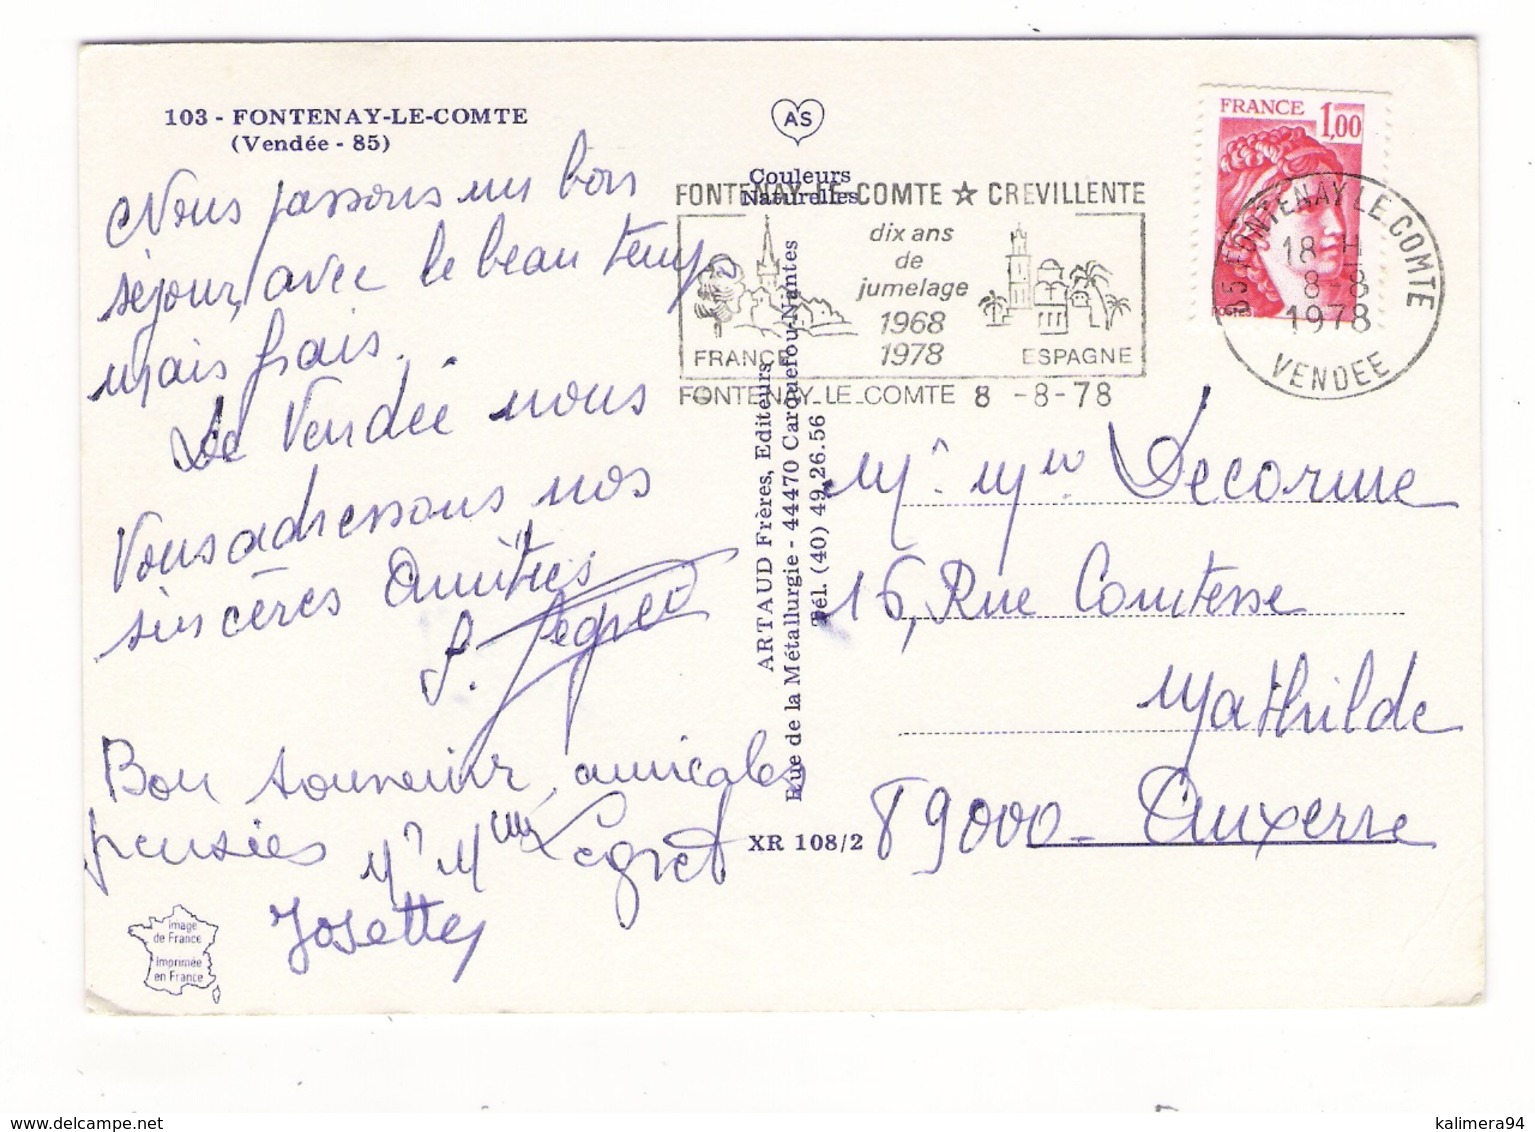 103 - FONTENAY-LE-COMTE
(Vendée - 85)
AS
Couleurs
Naturelles
FRANCE
1,00
FONTENAY-LE-COMTE ☆ CREVILLENTE
dix ans
de
jumelage
1968
1978
FRANCE
ESPAGNE
FONTENAY-LE-COMTE 8 -8-78
85 FONTENAY LE COMTE
18 H
8-8
1978
VENDEE
Nous passons un bon
séjour, avec le beau temps
mais frais.
De Vendée nous
Vous adressons nos
sincères Amitiés
Bon souvenir, amicales
pensées Mr Mme Legret
Josette
ARTAUD Frères, Editeurs
Rue de la Métallurgie - 44470 Carquefou-Nantes
Tél. (40) 49.26.56
XR 108/2
Mr Mme Decorme
16, Rue Comtesse
Mathilde
89000 - Auxerre
Image
de France
Imprimée
en France
kalimera94